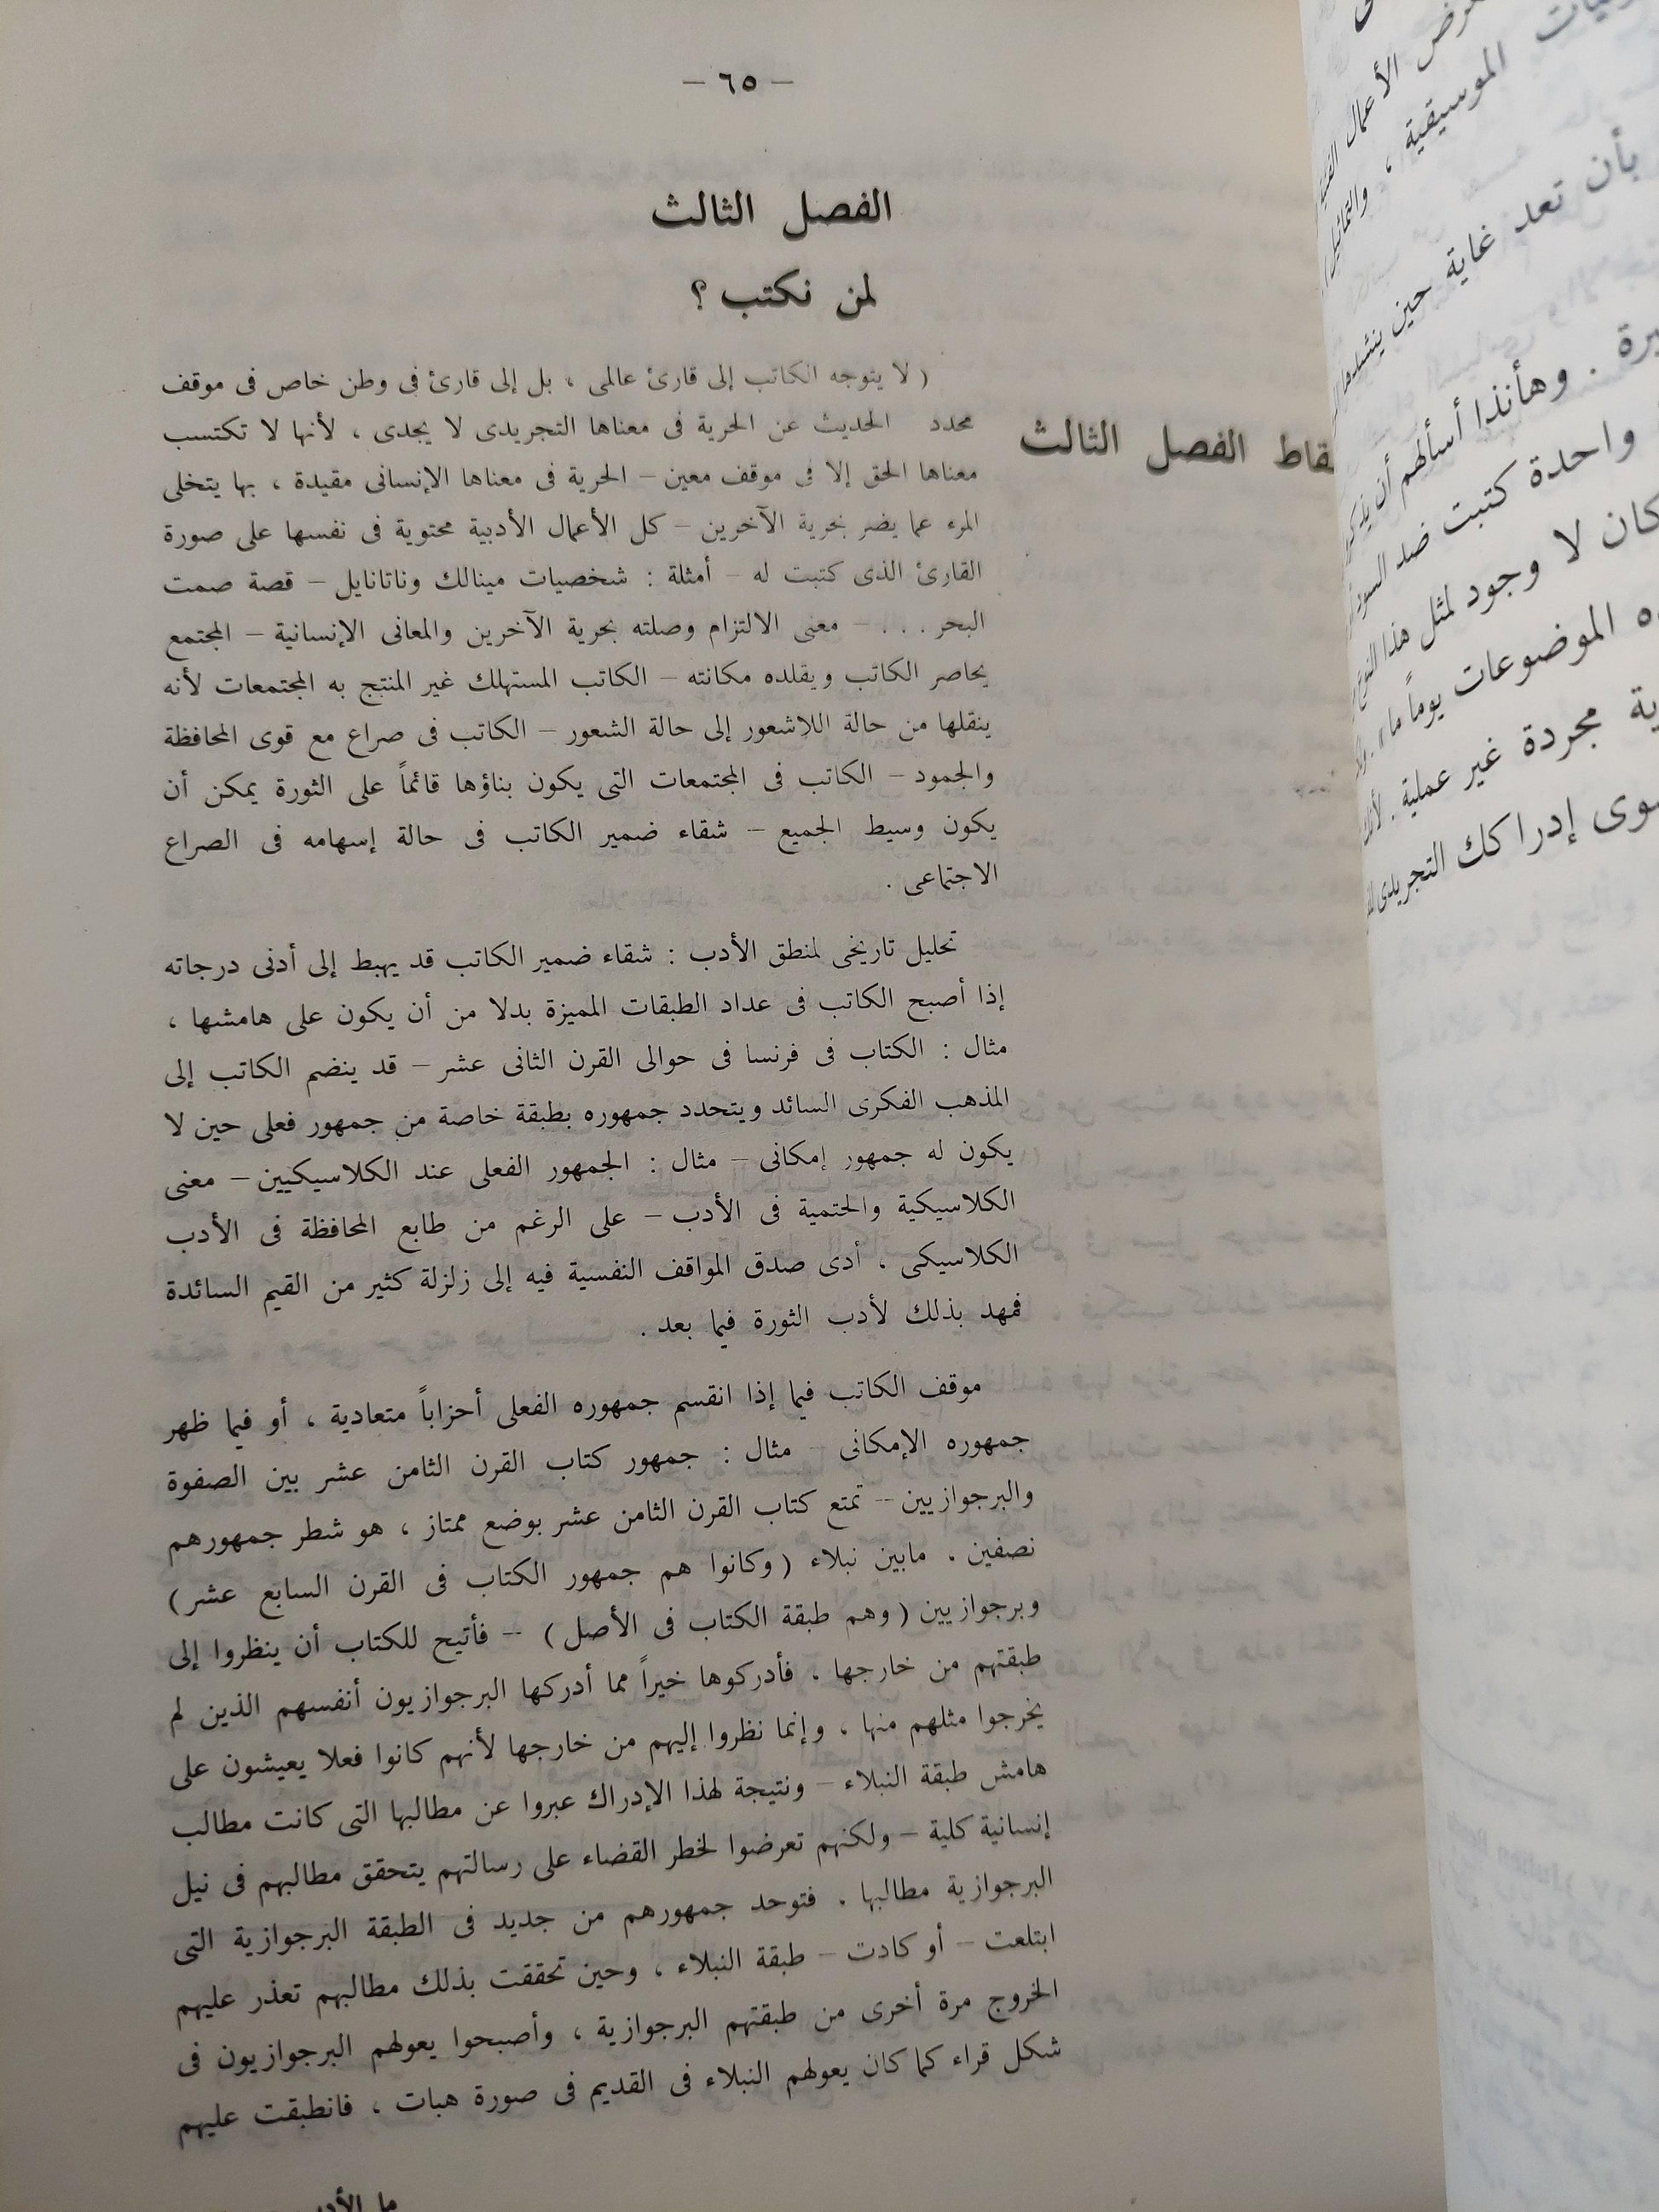 — ٦٥ —
الفصل الثالث
لمن نكتب ؟
نقاط الفصل الثالث
( لا يتوجه الكاتب إلى قارئ عالمى ، بل إلى قارئ فى وطن خاص فى موقف
محدد الحديث عن الحرية فى معناها التجريدى لا يجدى ، لأنها لا تكتسب
معناها الحق إلا فى موقف معين – الحرية فى معناها الإنسانى مقيدة ، بها يتخلى
المرء عما يضر بحرية الآخرين – كل الأعمال الأدبية محتوية فى نفسها على صورة
القارئ الذى كتبت له – أمثلة : شخصيات مينالك وناتانايل – قصة صمت
البحر . . . – معنى الالتزام وصلته بحرية الآخرين والمعانى الإنسانية – المجتمع
يحاصر الكاتب ويقلده مكانته – الكاتب المستهلك غير المنتج به المجتمعات لأنه
ينقلها من حالة اللاشعور إلى حالة الشعور – الكاتب فى صراع مع قوى المحافظة
والجمود – الكاتب فى المجتمعات التى يكون بناؤها قائماً على الثورة يمكن أن
يكون وسيط الجميع – شقاء ضمير الكاتب فى حالة إسهامه فى الصراع
الاجتماعى .
تحليل تاريخى لمنطق الأدب : شقاء ضمير الكاتب قد يهبط إلى أدنى درجاته
إذا أصبح الكاتب فى عداد الطبقات المميزة بدلا من أن يكون على هامشها ،
مثال : الكتاب فى فرنسا فى حوالى القرن الثانى عشر – قد ينضم الكاتب إلى
المذهب الفكرى السائد ويتحدد جمهوره بطبقة خاصة من جمهور فعلى حين لا
يكون له جمهور إمكانى – مثال : الجمهور الفعلى عند الكلاسيكيين – معنى
الكلاسيكية والحتمية فى الأدب – على الرغم من طابع المحافظة فى الأدب
الكلاسيكى ، أدى صدق المواقف النفسية فيه إلى زلزلة كثير من القيم السائدة
فمهد بذلك لأدب الثورة فيما بعد .
موقف الكاتب فيما إذا انقسم جمهوره الفعلى أحزاباً متعادية ، أو فيما ظهر
جمهوره الإمكانى – مثال : جمهور كتاب القرن الثامن عشر بين الصفوة
والبرجوازيين – تمتع كتاب القرن الثامن عشر بوضع ممتاز ، هو شطر جمهورهم
نصفين . مابين نبلاء ( وكانوا هم جمهور الكتاب فى القرن السابع عشر )
وبرجوازيين ( وهم طبقة الكتاب فى الأصل ) – فأتيح للكتاب أن ينظروا إلى
طبقتهم من خارجها . فأدركوها خيراً مما أدركها البرجوازيون أنفسهم الذين لم
يخرجوا مثلهم منها ، وإنما نظروا إليهم من خارجها لأنهم كانوا فعلا يعيشون على
هامش طبقة النبلاء – ونتيجة لهذا الإدراك عبروا عن مطالبها التى كانت مطالب
إنسانية كلية – ولكنهم تعرضوا لخطر القضاء على رسالتهم يتحقق مطالبهم فى نيل
البرجوازية مطالبها . فتوحد جمهورهم من جديد فى الطبقة البرجوازية التى
ابتلعت – أو كادت – طبقة النبلاء ، وحين تحققت بذلك مطالبهم تعذر عليهم
الخروج مرة أخرى من طبقتهم البرجوازية ، وأصبحوا يعولهم البرجوازيون فى
شكل قراء كما كان يعولهم النبلاء فى القديم فى صورة هبات ، فانطبقت عليهم
الموسيقية ، والتماثيل
بأن تعد غاية حين ينشدها
وهأنذا أسألهم أن
واحدة كتبت ضد
كان لا وجود لمثل هذا النوع
الموضوعات يوماً ما
مجردة غير عملية . لأنك
سوى إدراكك التجريدى